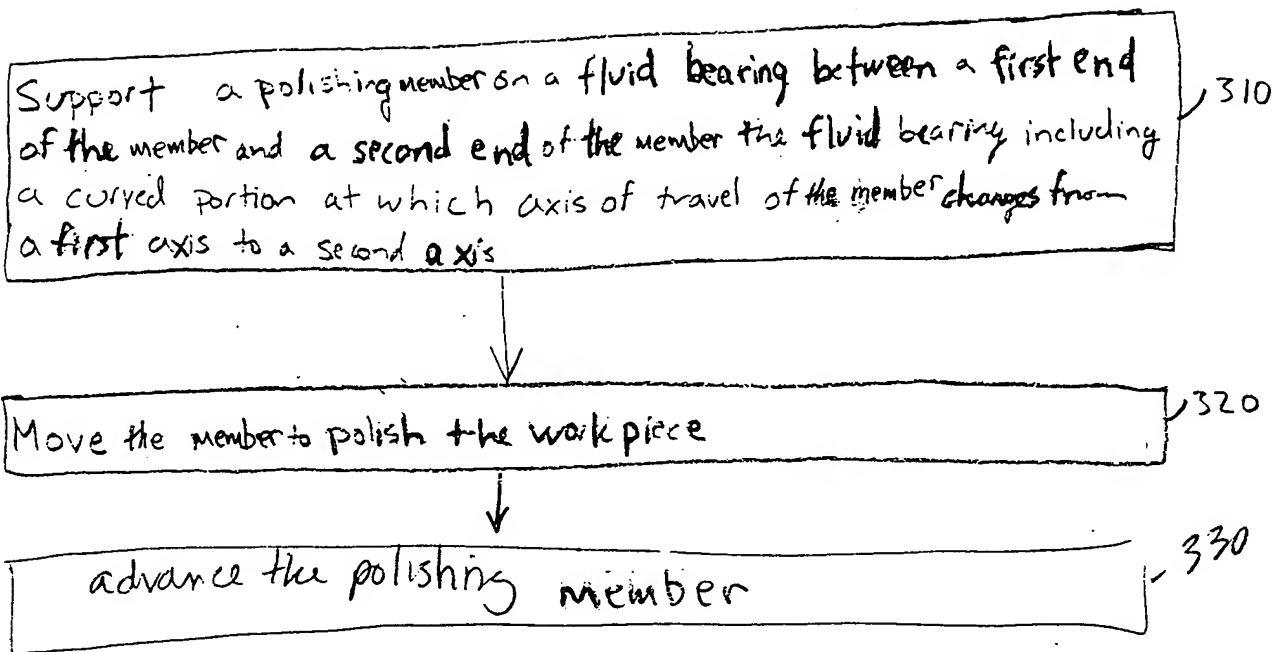 Support a polishing member on a fluid bearing between a first end
of the member and a second end of the member the fluid bearing including
a curved portion at which axis of travel of the member changes from
a first axis to a second axis
310
Move the member to polish the workpiece
320
advance the polishing member
330